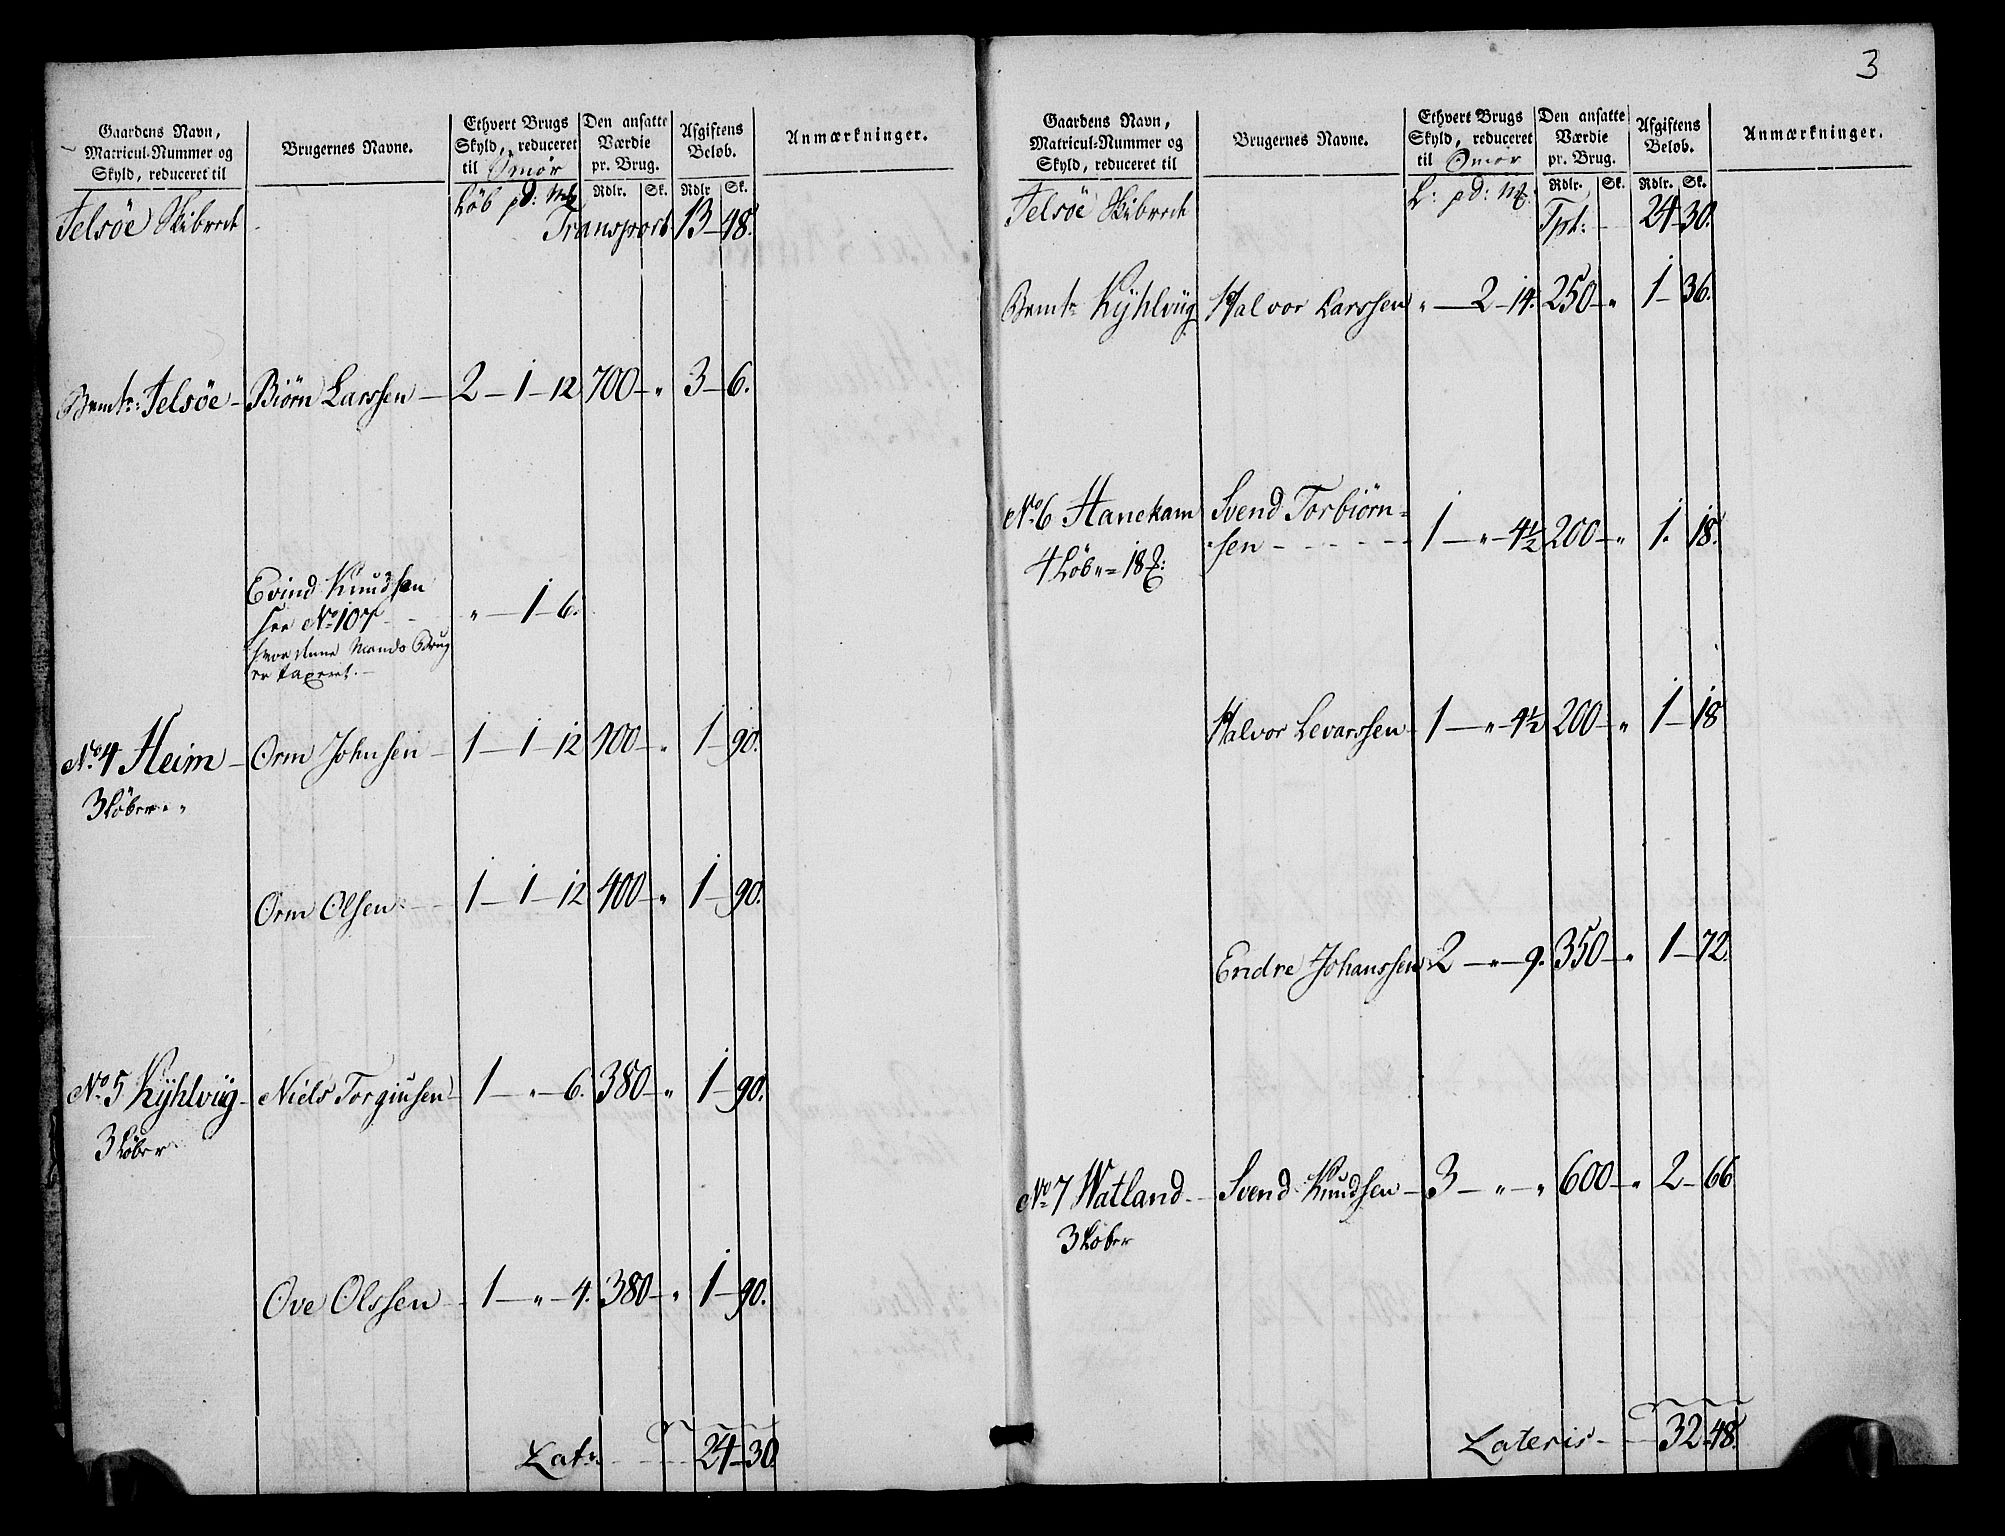 Gaardens Navn,
Matricul-Nummer og
Skyld, reduceret til
Brugernes Navne.
Ethvert Brugs
Skyld, reduceret
til Smør
Den ansatte
Værdie
pr. Brug.
Afgiftens
Beløb.
Anmærkninger.
Løb pd: Mk
Rdlr. Sk. Rdlr Sk.
Felsøe Skibrede
Transport 13 - 48.
Bemte: Felsøe - Biørn Larssen - 2 - 1 - 12 700 - " 3 - 6.
Evind Knudsen
see No 107
hvor denne Mands Brug
er taxeret. -
" - 1 - 6.
No 4 Heim - Orm Johnsen - 1 - 1 - 12 400 - " 1 - 90.
3 Løber " "
Orm Olsen - 1 - 1 - 12 400 - " 1 - 90.
No 5 Kyhlvüg - Niels Torgiusen - 1 - " - 6. 380 - " 1 - 90.
3 Løber
Ove Olssen - 1 - " - 4. 380 - " 1 - 90.
Lats 24 - 30
3
Gaardens Navn,
Matricul-Nummer og
Skyld, reduceret til
Brugernes Navne.
Ethvert Brugs
Skyld, reduceret
til Smør
Den ansatte
Værdie
pr. Brug.
Afgiftens
Beløb.
Anmærkninger.
L: pd: Mk:
Rdlr. Sk. Rdlr. Sk.
Felsøe Skibrede
Tpt: 24 - 30.
Bemte Kyhlvüg Halvor Larssen " - 2 - 14. 250 - " 1 - 36.
No 6 Hanekam Svend Torbiørn=
4 Løb " = 18 sen - 1 - " - 4½ 200 - " 1. 18.
Halvor Levarssen - 1 - " - 4½ 200 - " 1 - 18
Endre Johanssen 2 - " - 9. 350 - " 1 - 72.
No 7 Watland - Svend Knudsen - 3 - " - " 600 - " 2 - 66
3 Løber
Lateris - 32 - 48.